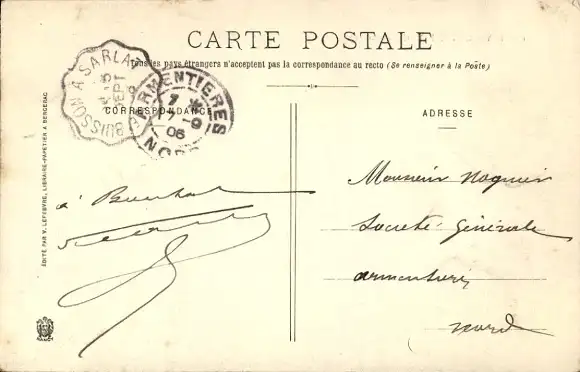 CARTE POSTALE
Tous les pays étrangers n'acceptent pas la correspondance au recto (Se renseigner à la Poste)
BUISSON A SARLAT
SEPT
ARMENTIERES
7 - 9
06
NORD
CORRESPONDANCE
ADRESSE
à
Monsieur
Société Générale
Armentières
Nord
ÉDITÉ PAR V. LEFEBVRE, LIBRAIRE-PAPETIER A BERGERAC